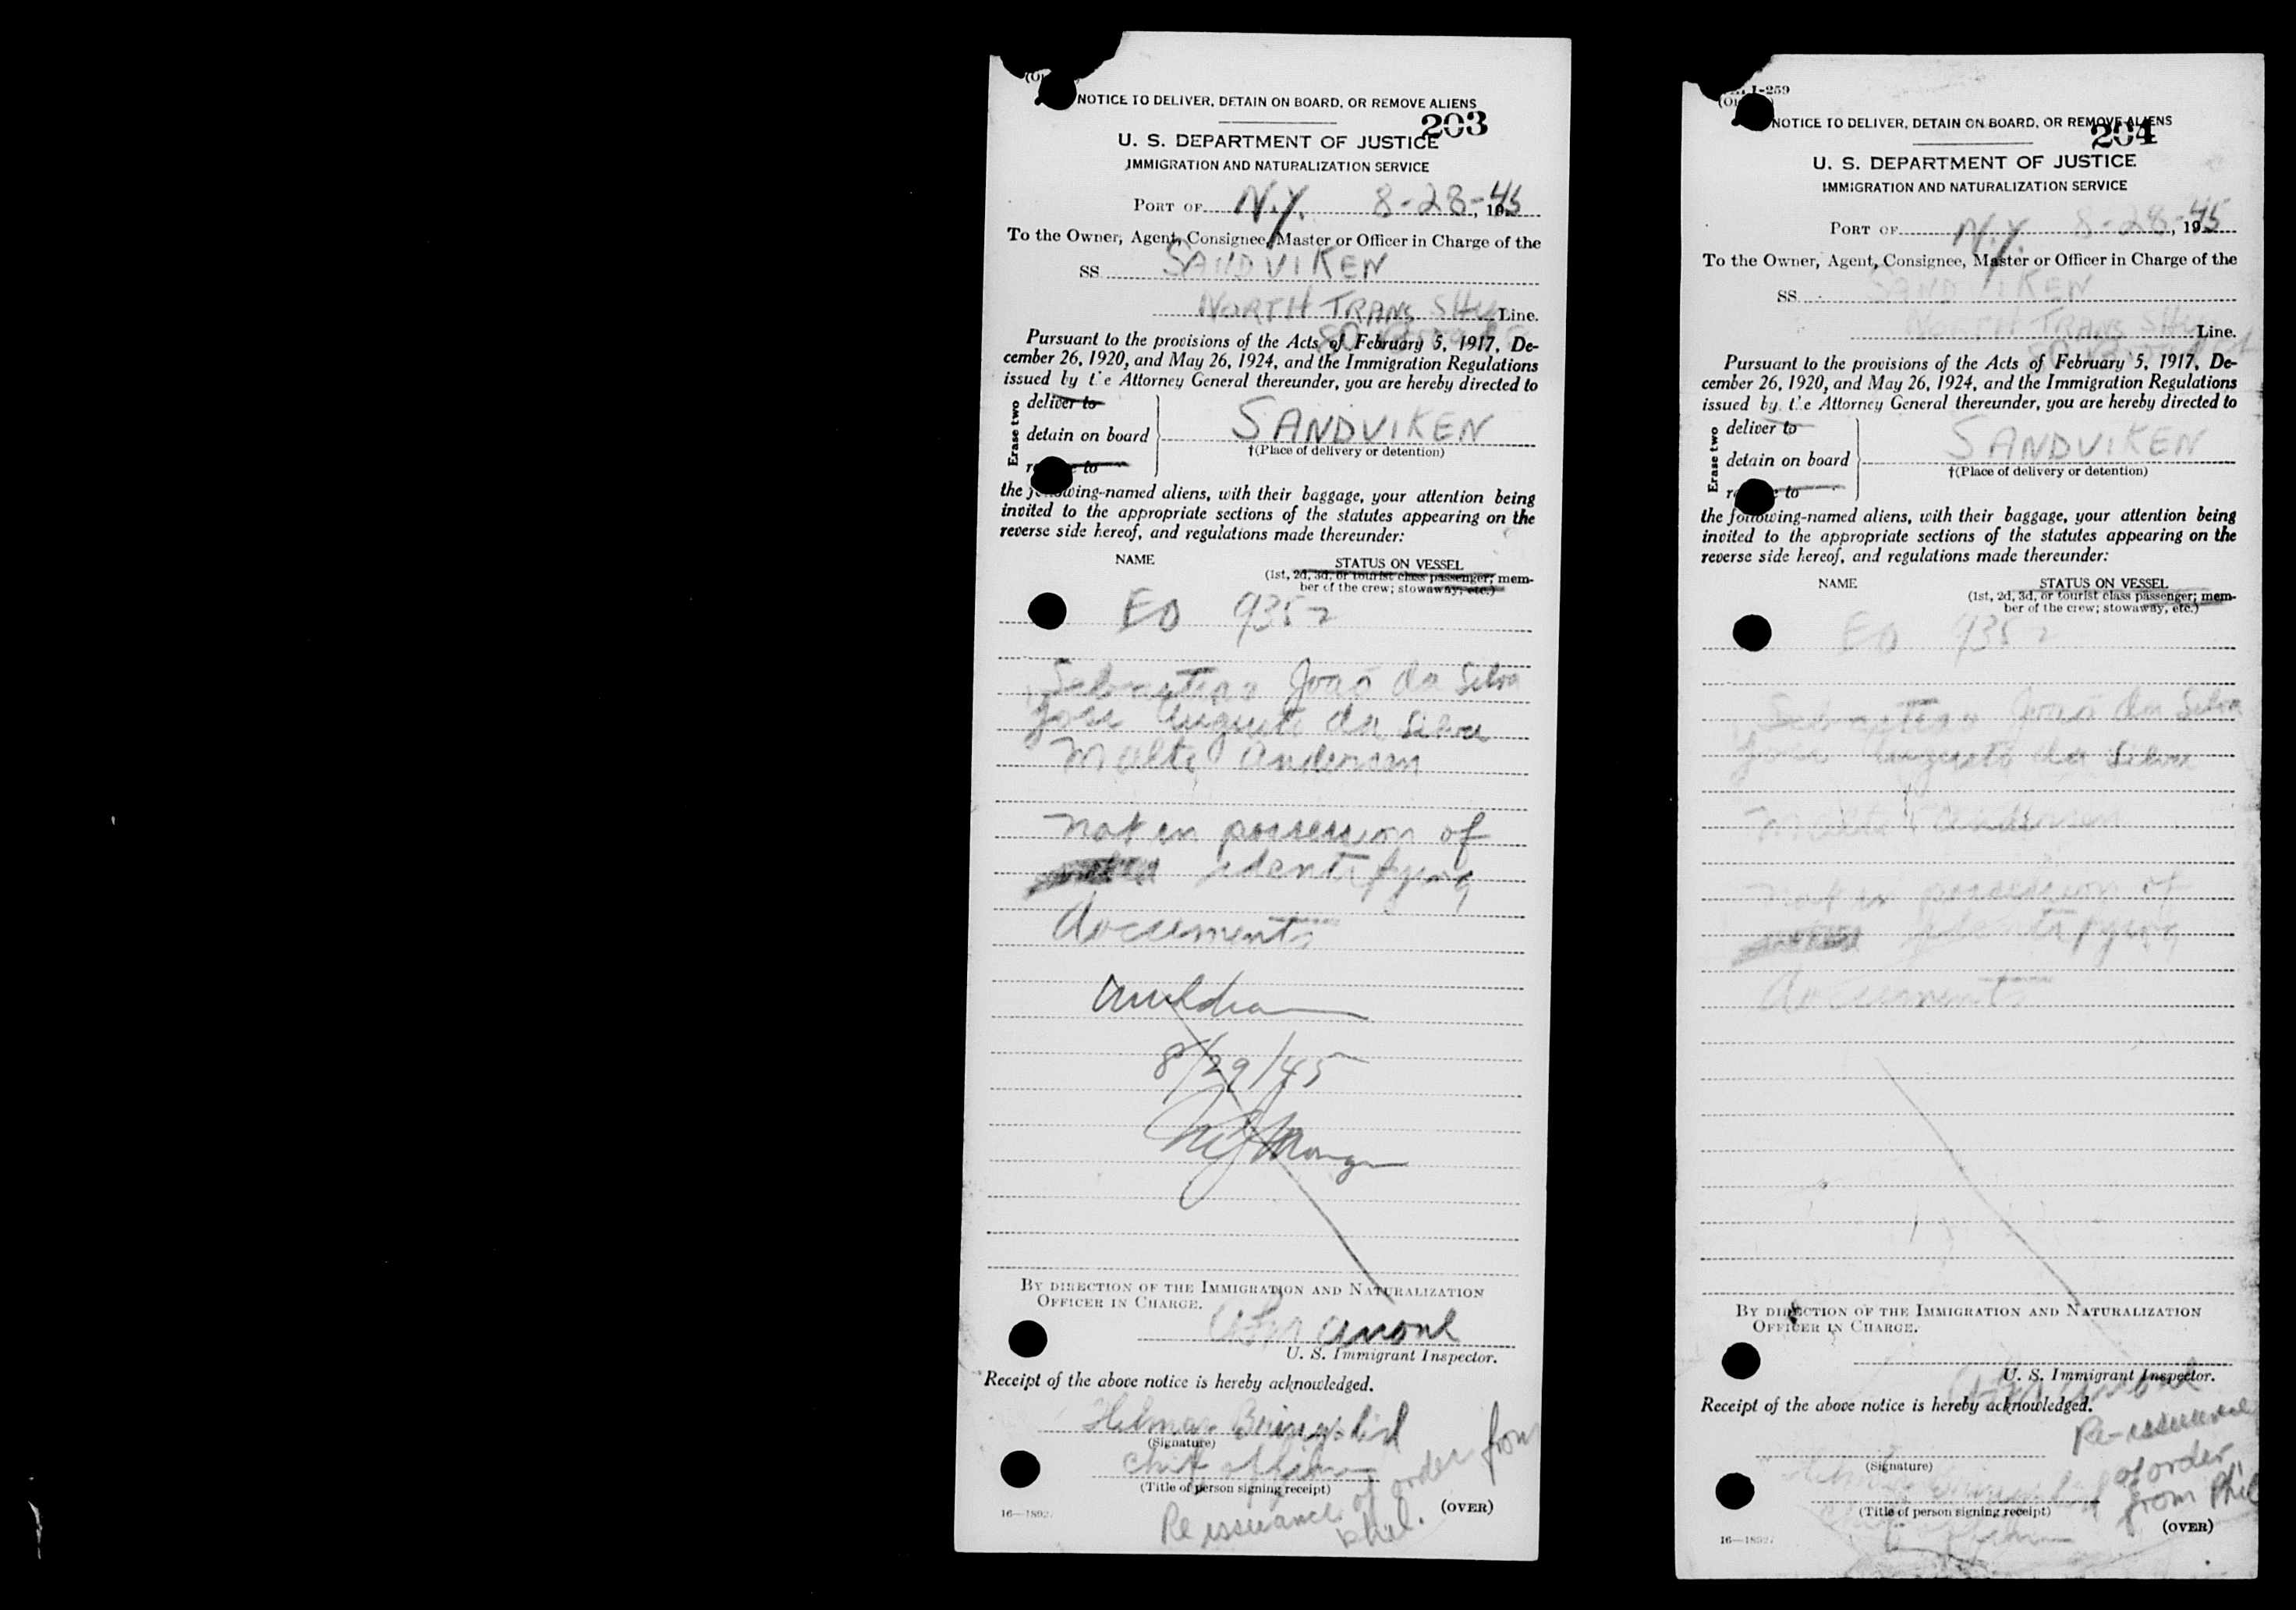 NOTICE TO DELIVER, DETAIN ON BOARD, OR REMOVE ALIENS
203
U. S. DEPARTMENT OF JUSTICE
IMMIGRATION AND NATURALIZATION SERVICE
PORT OF N.Y. 8-28-45, 19
To the Owner, Agent, Consignee, Master or Officer in Charge of the
SS SANDVIKEN
NORTH TRANS Line.
Pursuant to the provisions of the Acts of February 5, 1917, De-
cember 26, 1920, and May 26, 1924, and the Immigration Regulations
issued by the Attorney General thereunder, you are hereby directed to
Erase two
deliver to
detain on board SANDVIKEN
†(Place of delivery or detention)
to
the following-named aliens, with their baggage, your attention being
invited to the appropriate sections of the statutes appearing on the
reverse side hereof, and regulations made thereunder:
NAME STATUS ON VESSEL
(1st, 2d, 3d, or tourist class passenger; mem-
ber of the crew; stowaway, etc.)
EO 9352
Sebastiao Joao da Silva
Jose Augusto da Silva
Malte Anderson
not in possession of
identifying
documents
8/29/45
BY DIRECTION OF THE IMMIGRATION AND NATURALIZATION
OFFICER IN CHARGE.
U. S. Immigrant Inspector.
Receipt of the above notice is hereby acknowledged.
Helmar
(Signature)
Chief officer
(Title of person signing receipt)
Reissuance of order from
Phil.
(OVER)
I-259
NOTICE TO DELIVER, DETAIN ON BOARD, OR REMOVE ALIENS
204
U. S. DEPARTMENT OF JUSTICE
IMMIGRATION AND NATURALIZATION SERVICE
PORT OF N.Y. 8-28-45, 19
To the Owner, Agent, Consignee, Master or Officer in Charge of the
SS SANDVIKEN
NORTH TRANS Line.
Pursuant to the provisions of the Acts of February 5, 1917, De-
cember 26, 1920, and May 26, 1924, and the Immigration Regulations
issued by the Attorney General thereunder, you are hereby directed to
Erase two
deliver to
detain on board SANDVIKEN
†(Place of delivery or detention)
to
the following-named aliens, with their baggage, your attention being
invited to the appropriate sections of the statutes appearing on the
reverse side hereof, and regulations made thereunder:
NAME STATUS ON VESSEL
(1st, 2d, 3d, or tourist class passenger; mem-
ber of the crew; stowaway, etc.)
EO 9352
Sebastiao Joao da Silva
Jose Augusto da Silva
Malte Anderson
not in possession of
identifying
documents
BY DIRECTION OF THE IMMIGRATION AND NATURALIZATION
OFFICER IN CHARGE.
U. S. Immigrant Inspector.
Receipt of the above notice is hereby acknowledged.
Re-issuance
of order
from Phil
(Signature)
(Title of person signing receipt)
(OVER)